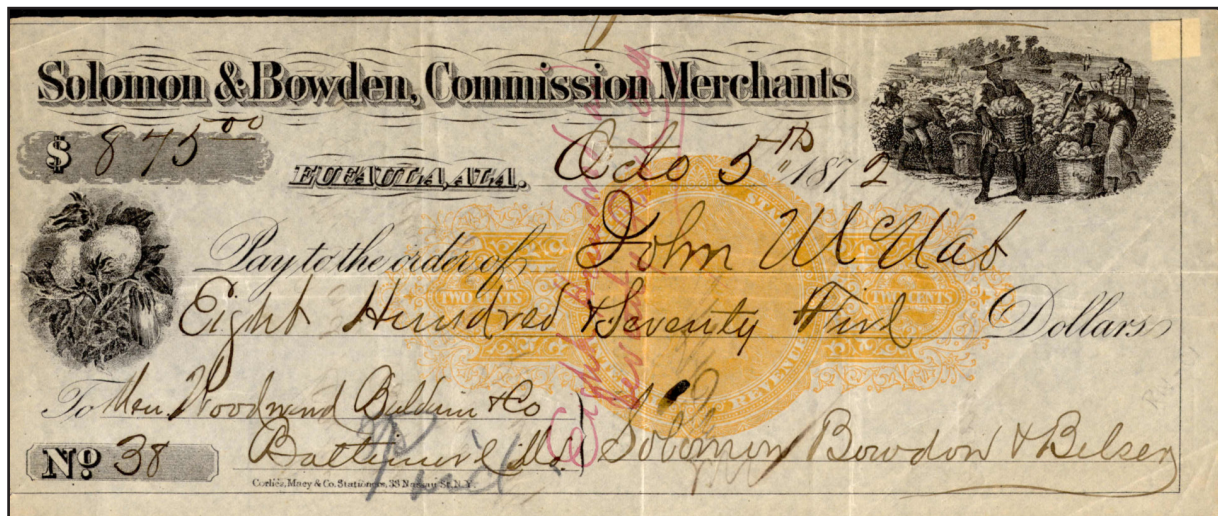 Solomon & Bowden, Commission Merchants
$ 875 00
EUFAULA, ALA. Octo 5th 1872
Pay to the order of John McNab
Eight Hundred & Seventy Five Dollars
TWO CENTS TWO CENTS
REVENUE
To Mess Woodward Baldwin & Co
Baltimore Md.
No 38
Solomon Bowdon & Belser
Paid
Eight Hundred
Corlies, Macy & Co. Stationers, 33 Nassau St. N.Y.